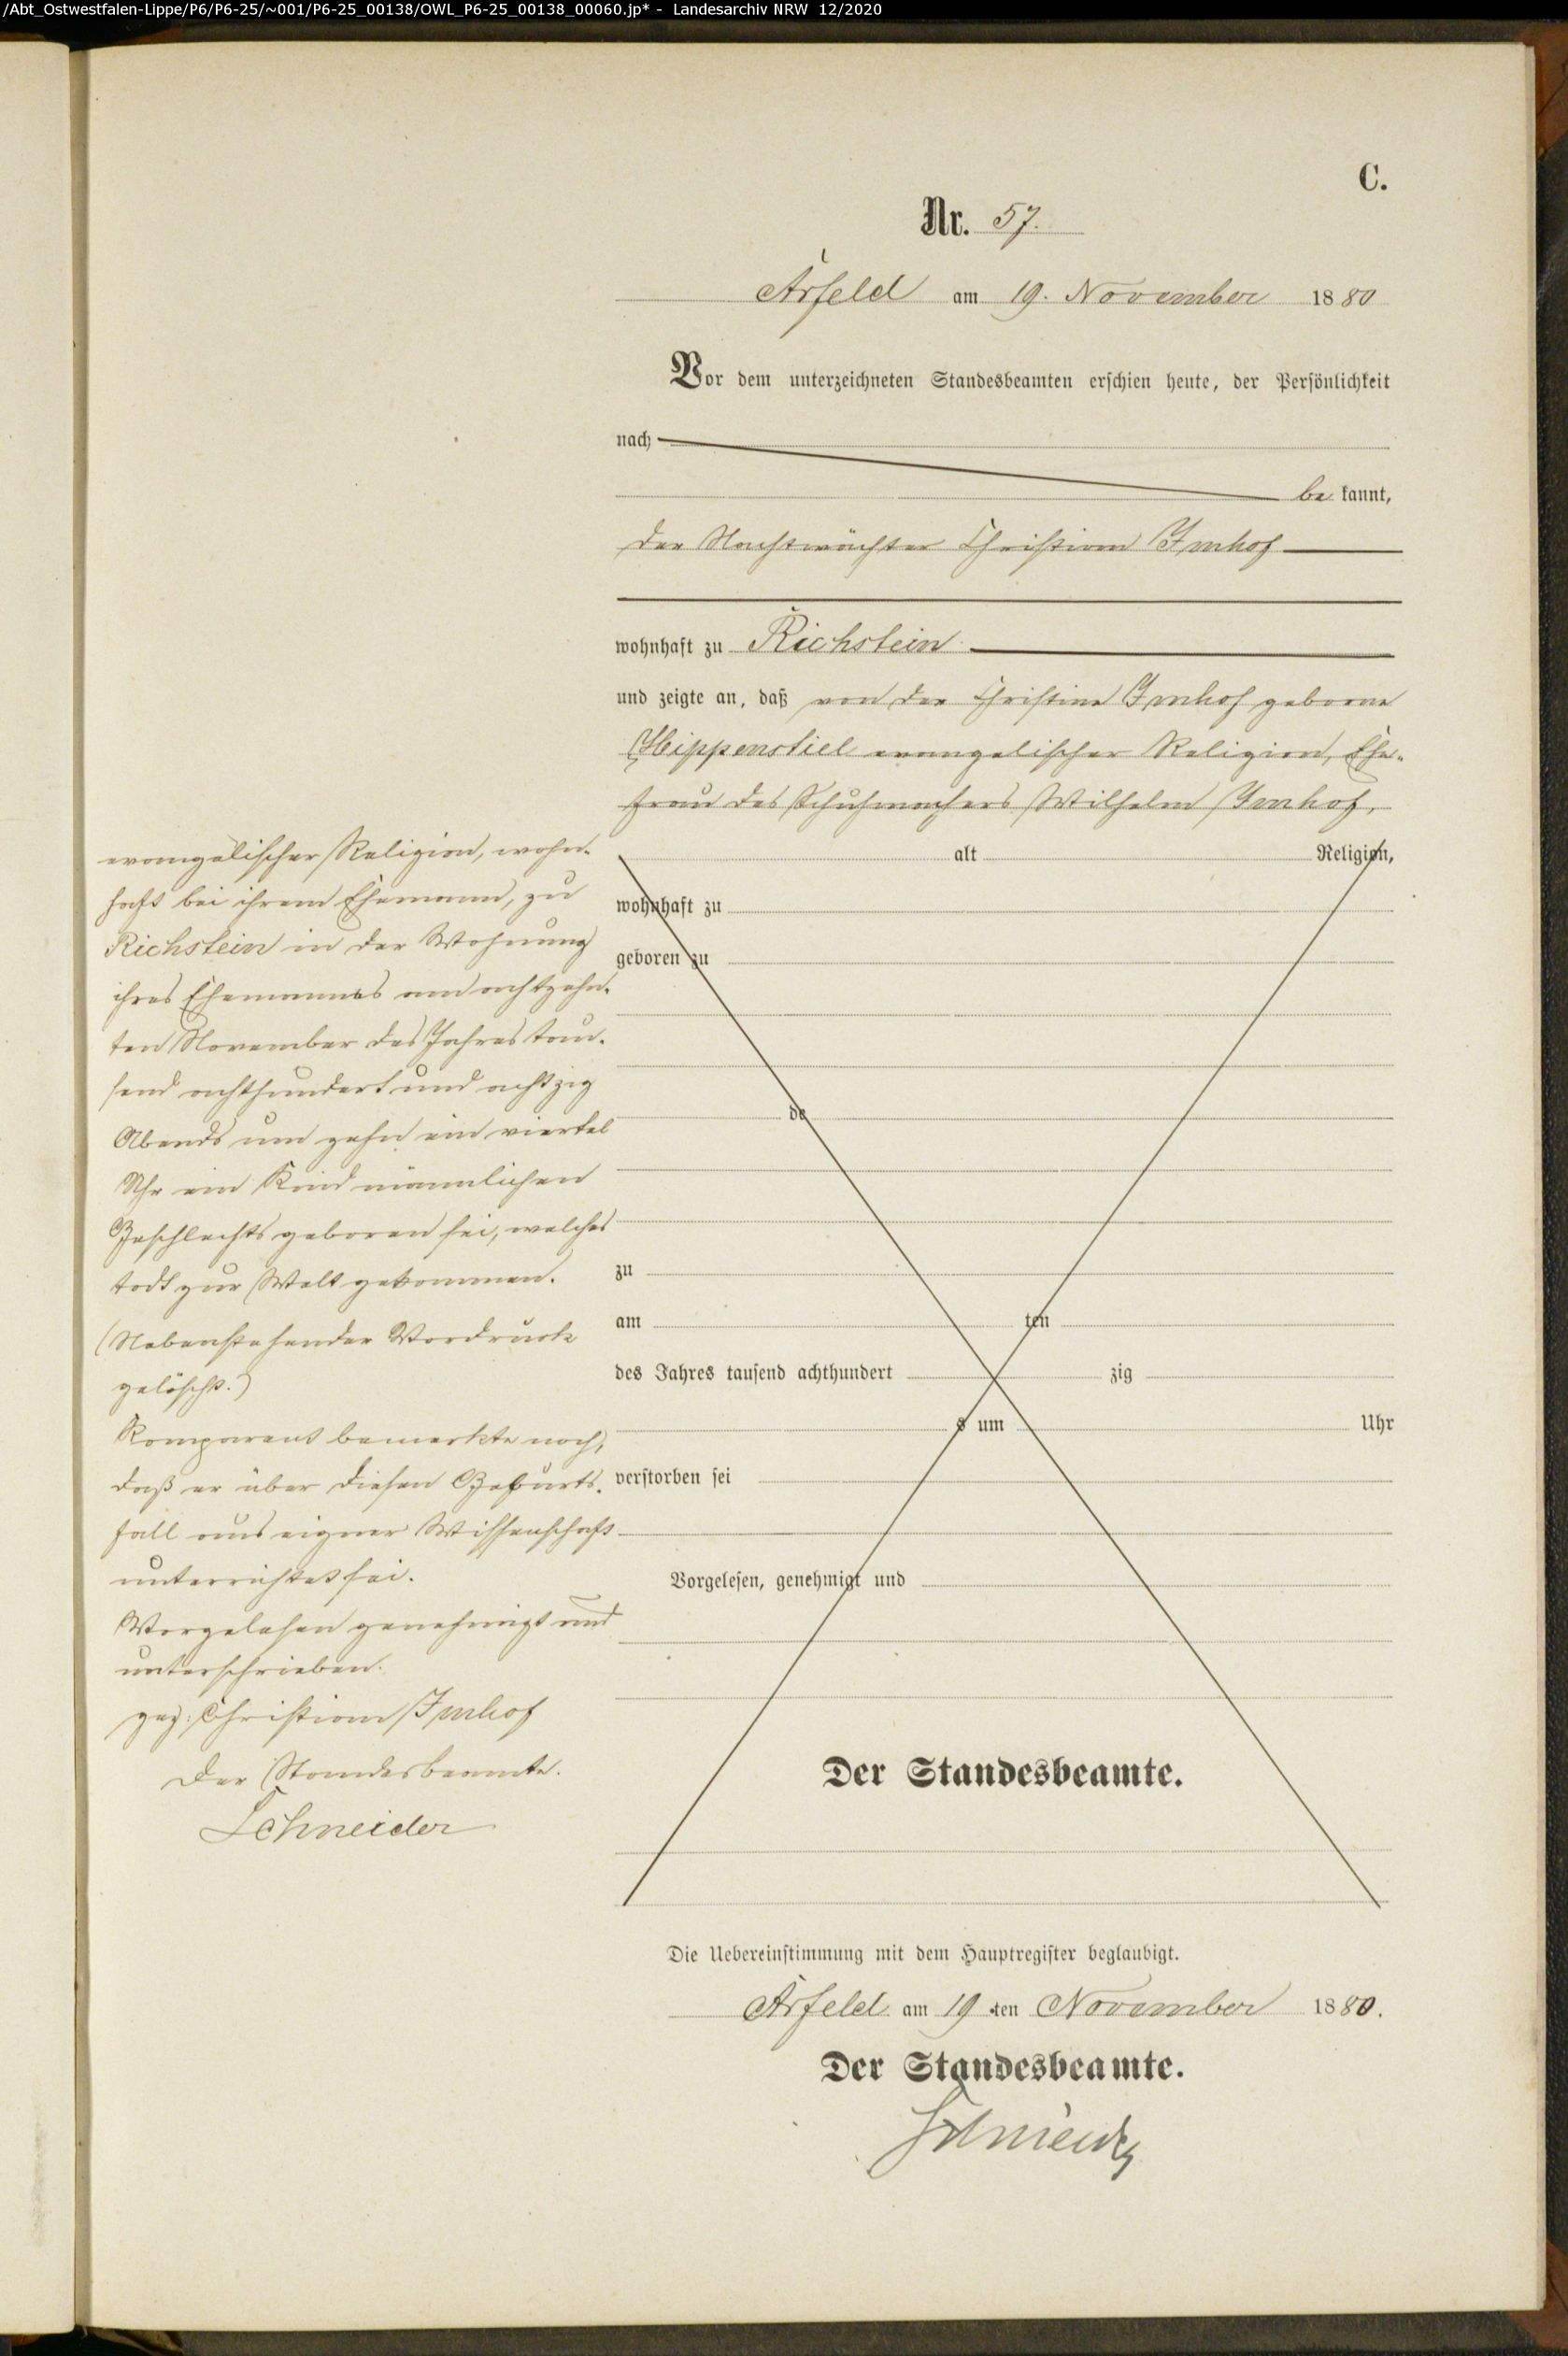 /Abt_Ostwestfalen-Lippe/P6/P6-25/~001/P6-25_00138/OWL_P6-25_00138_00060.jp* - Landesarchiv NRW 12/2020
C.
Nr. 57.
Arfeld am 19. November 1880
Vor dem unterzeichneten Standesbeamten erschien heute, der Persönlichkeit
nach
be kannt,
der Nachtwächter Christian Imhof
wohnhaft zu Richstein
und zeigte an, daß von der Christine Imhof geborne
Hippenstiel evangelischer Religion, Ehe-
frau des Schuhmachers Wilhelm Imhof,
evangelischer Religion, wohn-
haft bei ihrem Ehemann, zu
Richstein in der Wohnung
ihres Ehemannes am achtzehn-
ten November des Jahres tau-
send achthundert und achtzig
Abends um zehn ein viertel
Uhr ein Kind männlichen
Geschlechts geboren sei, welches
todt zur Welt gekommen.
(Nebenstehender Vordruck
gelöscht.)
Komparent bemerkte noch,
daß er über diesen Geburts-
fall aus eigner Wissenschaft
unterrichtet sei.
Vorgelesen genehmigt und
unterschrieben.
gez: Christian Imhof
Der Standesbeamte.
Schneider
alt Religion,
wohnhaft zu
geboren zu
de
zu
am ten
des Jahres tausend achthundert zig
s um Uhr
verstorben sei
Vorgelesen, genehmigt und
Der Standesbeamte.
Die Uebereinstimmung mit dem Hauptregister beglaubigt.
Arfeld am 19 ten November 1880.
Der Standesbeamte.
Schneider